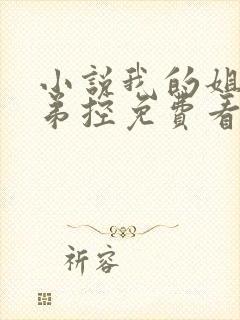 小说我的姐
弟控免费看
祈容